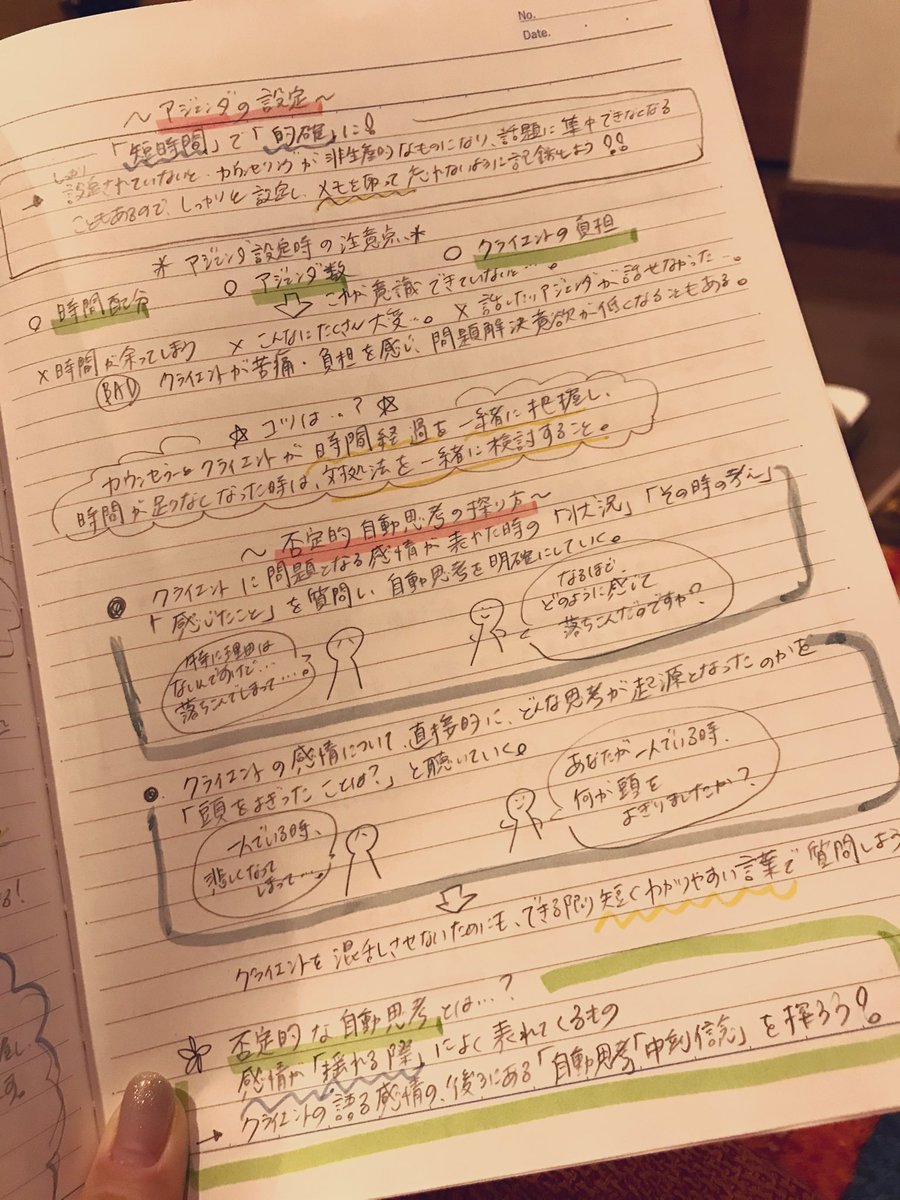 No.
Date.
～アジェンダの設定～
「短時間」で「的確」に！
→設定されていないと、カウンセリングが非生産的なものになり、話題に集中できなくなる
こともあるので、しっかりと設定し、メモを取って忘れないように記録しよう！！
＊アジェンダ設定時の注意点＊
○時間配分 ○アジェンダ数 ○クライエントの負担
これが意識できていないと…。
×時間が余ってしまう ×こんなにたくさん大変…。 ×話したいアジェンダが話せなかった…。
BAD クライエントが苦痛・負担を感じ、問題解決意欲が低くなることもある。
☆コツは…？☆
カウンセラーとクライエントが時間経過を一緒に把握し、
時間が足りなくなった時は、対処法を一緒に検討すること。
～否定的自動思考の探り方～
クライエントに問題となる感情が表れた時の「状況」「その時の考え」
「感じたこと」を質問し、自動思考を明確にしていく。
特に理由は
ないんですけど…
落ちこんでしまって…。
なるほど、
どのように感じて
落ちこんだのですか？
クライエントの感情について、直接的に、どんな思考が起源となったのかを
「頭をよぎったことは？」と聴いていく。
一人でいる時、
悲しくなって
しまって…。
あなたが一人でいる時、
何か頭を
よぎりましたか？
クライエントを混乱させないためにも、できる限り短くわかりやすい言葉で質問しよう
否定的な自動思考とは…？
感情が「揺れる際」によく表れてくるもの
→クライエントの語る感情の、後ろにある「自動思考」「中核信念」を探ろう！